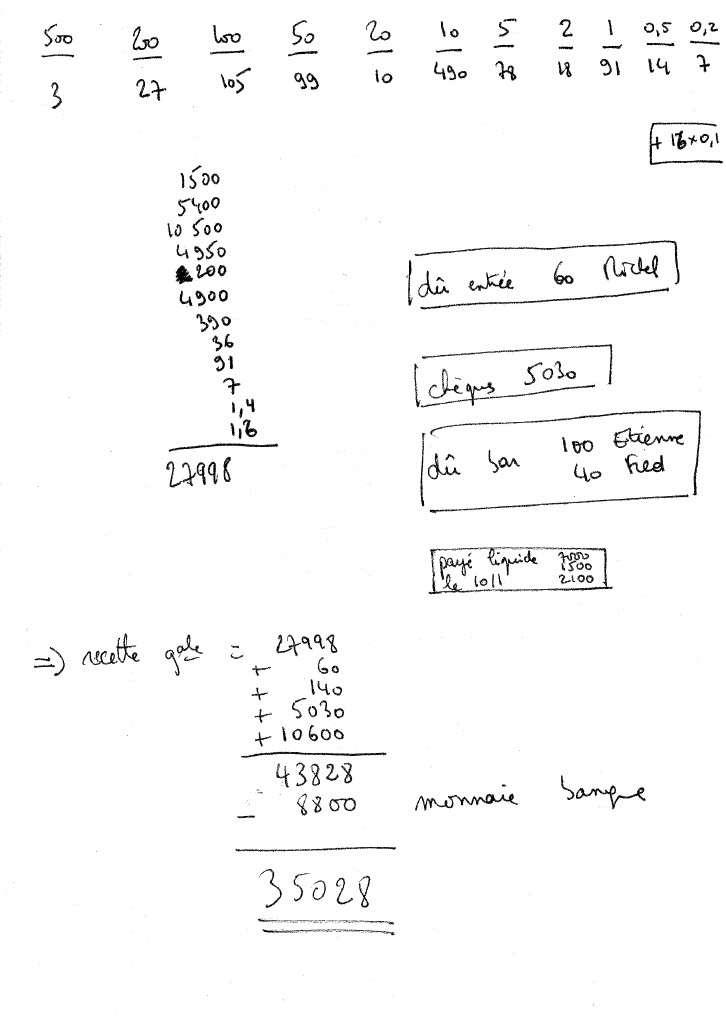 500 200 100 50 20 10 5 2 1 0,5 0,2
3 27 105 99 10 490 78 18 91 14 7
+ 16×0,1
1500
5400
10 500
4950
200
4900
390
36
91
7
1,4
1,6
27998
dû entrée 60
chèques 5030
dû bar 100 Etienne
40 Fred
payé liquide 7000
1500
le 10/1 2100
=) recette gale = 27998
+ 60
+ 140
+ 5030
+ 10600
43828
- 8800 monnaie banque
35028